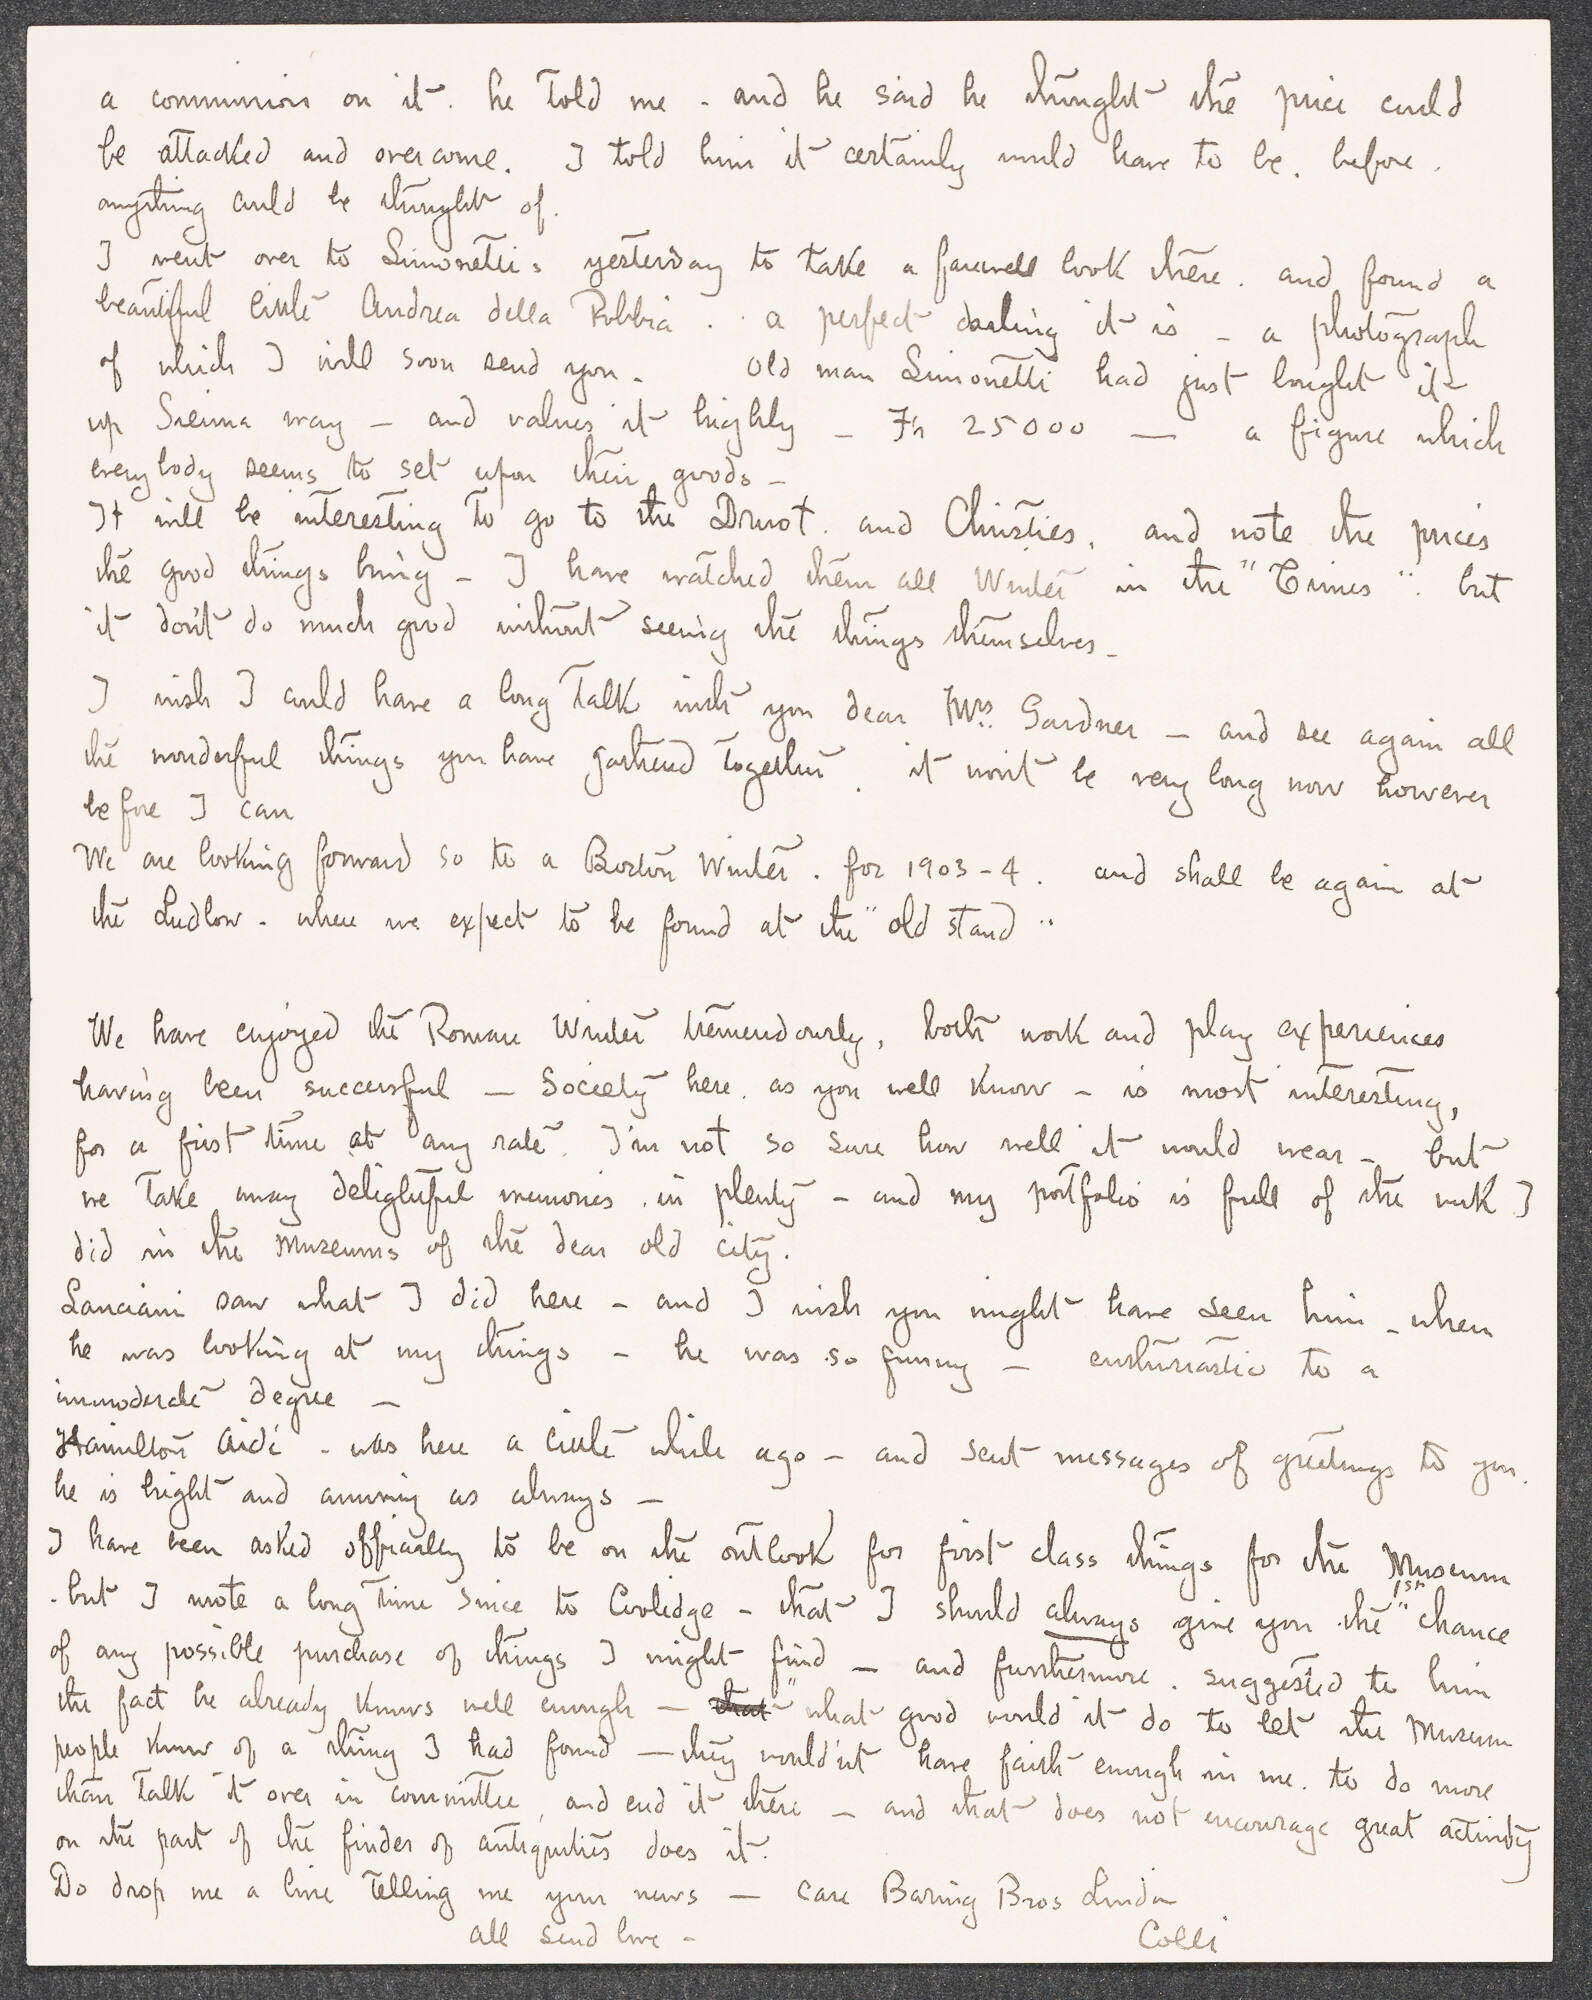 a commission on it. he told me - and he said he thought the price could
be attacked and overcome. I told him it certainly would have to be. before.
anything could be thought of.
I went over to Simonetti's yesterday to take a farewell look there. and found a
beautiful little Andrea della Robbia. . a perfect darling it is - a photograph
of which I will soon send you. Old man Simonetti had just bought it
up Sienna way - and values it highly - Frs 25000 — a figure which
everybody seems to set upon their goods -
It will be interesting to go to the Druot. and Christies, and note the prices
the good things bring - I have watched them all Winter in the "Times". but
it don't do much good without seeing the things themselves -
I wish I could have a long talk with you dear Mrs. Gardner - and see again all
the wonderful things you have gathered together. it won't be very long now however
before I can
We are looking forward so to a Boston Winter. for 1903-4. and shall be again at
the Ludlow - where we expect to be found at the "old stand"
We have enjoyed the Roman Winter tremendously, both work and play experiences
having been successful — Society here. as you well know - is most interesting,
for a first time at any rate. I'm not so sure how well it would wear - but
we take away delightful memories. in plenty - and my portfolio is full of the work I
did in the Museums of the dear old city.
Lanciani saw what I did here - and I wish you might have seen him - when
he was looking at my things - he was so funny - enthusiastic to a
immoderate degree -
Hamilton Aidé - was here a little while ago - and sent messages of greetings to you.
he is bright and amusing as always -
I have been asked officially to be on the outlook for first class things for the Museum
- but I wrote a long time since to Coolidge - that I should always give you the "1st" chance
of any possible purchase of things I might find - and furthermore. suggested to him
the fact he already knows well enough - that "what good would it do to let the Museum
people know of a thing I had found — they would'nt have faith enough in me. to do more
than talk it over in committee, and end it there - and that does not encourage great activity
on the part of the finder of antiquities does it.
Do drop me a line telling me your news — care Baring Bros London
all send love - Colli